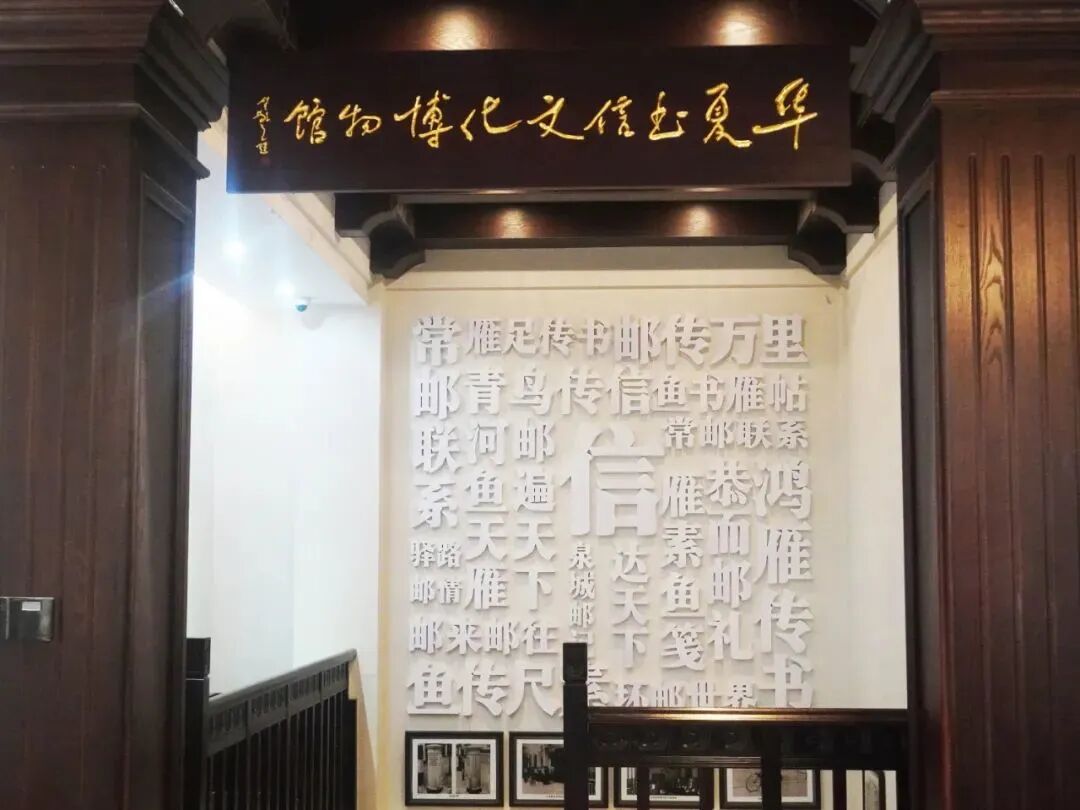 华夏书信文化博物馆
常邮联系
雁足传书
邮传万里
青鸟传信
鱼书雁帖
常邮联系
河鱼天雁
邮遍天下
信
雁素鱼笺
恭而邮礼
鸿雁传书
驿路邮情
泉城邮
达天下
邮来邮往
鱼传尺素
环邮世界